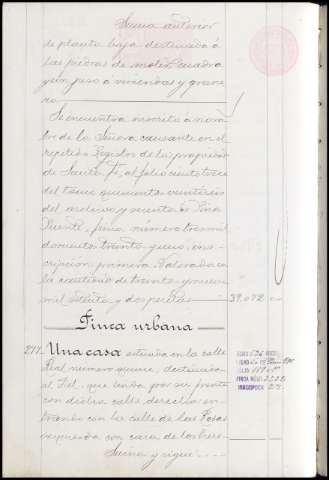 Suma anterior
de planta baja destinada á
las piedras de moler, cuadra
y un piso á viviendas y grane
ro
Se encuentra inscrito á nom
bre de la Señora causante en el
repetido Registro de la propiedad
de Santa Fé, al folio ciento trece
del tomo quinientos veintiseis
del archivo y sesenta de Pinos
Puente, finca número tres mil
doscientos treinta y uno, ins
cripción primera. Valorada en
la cantidad de treinta y nueve
mil setenta y dos pesetas 39.072
Finca urbana
211. Una casa situada en la calle
Real número quince, destinada
al Fiel, que linda por su frente
con dicha calle, derecha en
trando con la calle de las Posadas
izquierda con casa de los here-
Suma y sigue